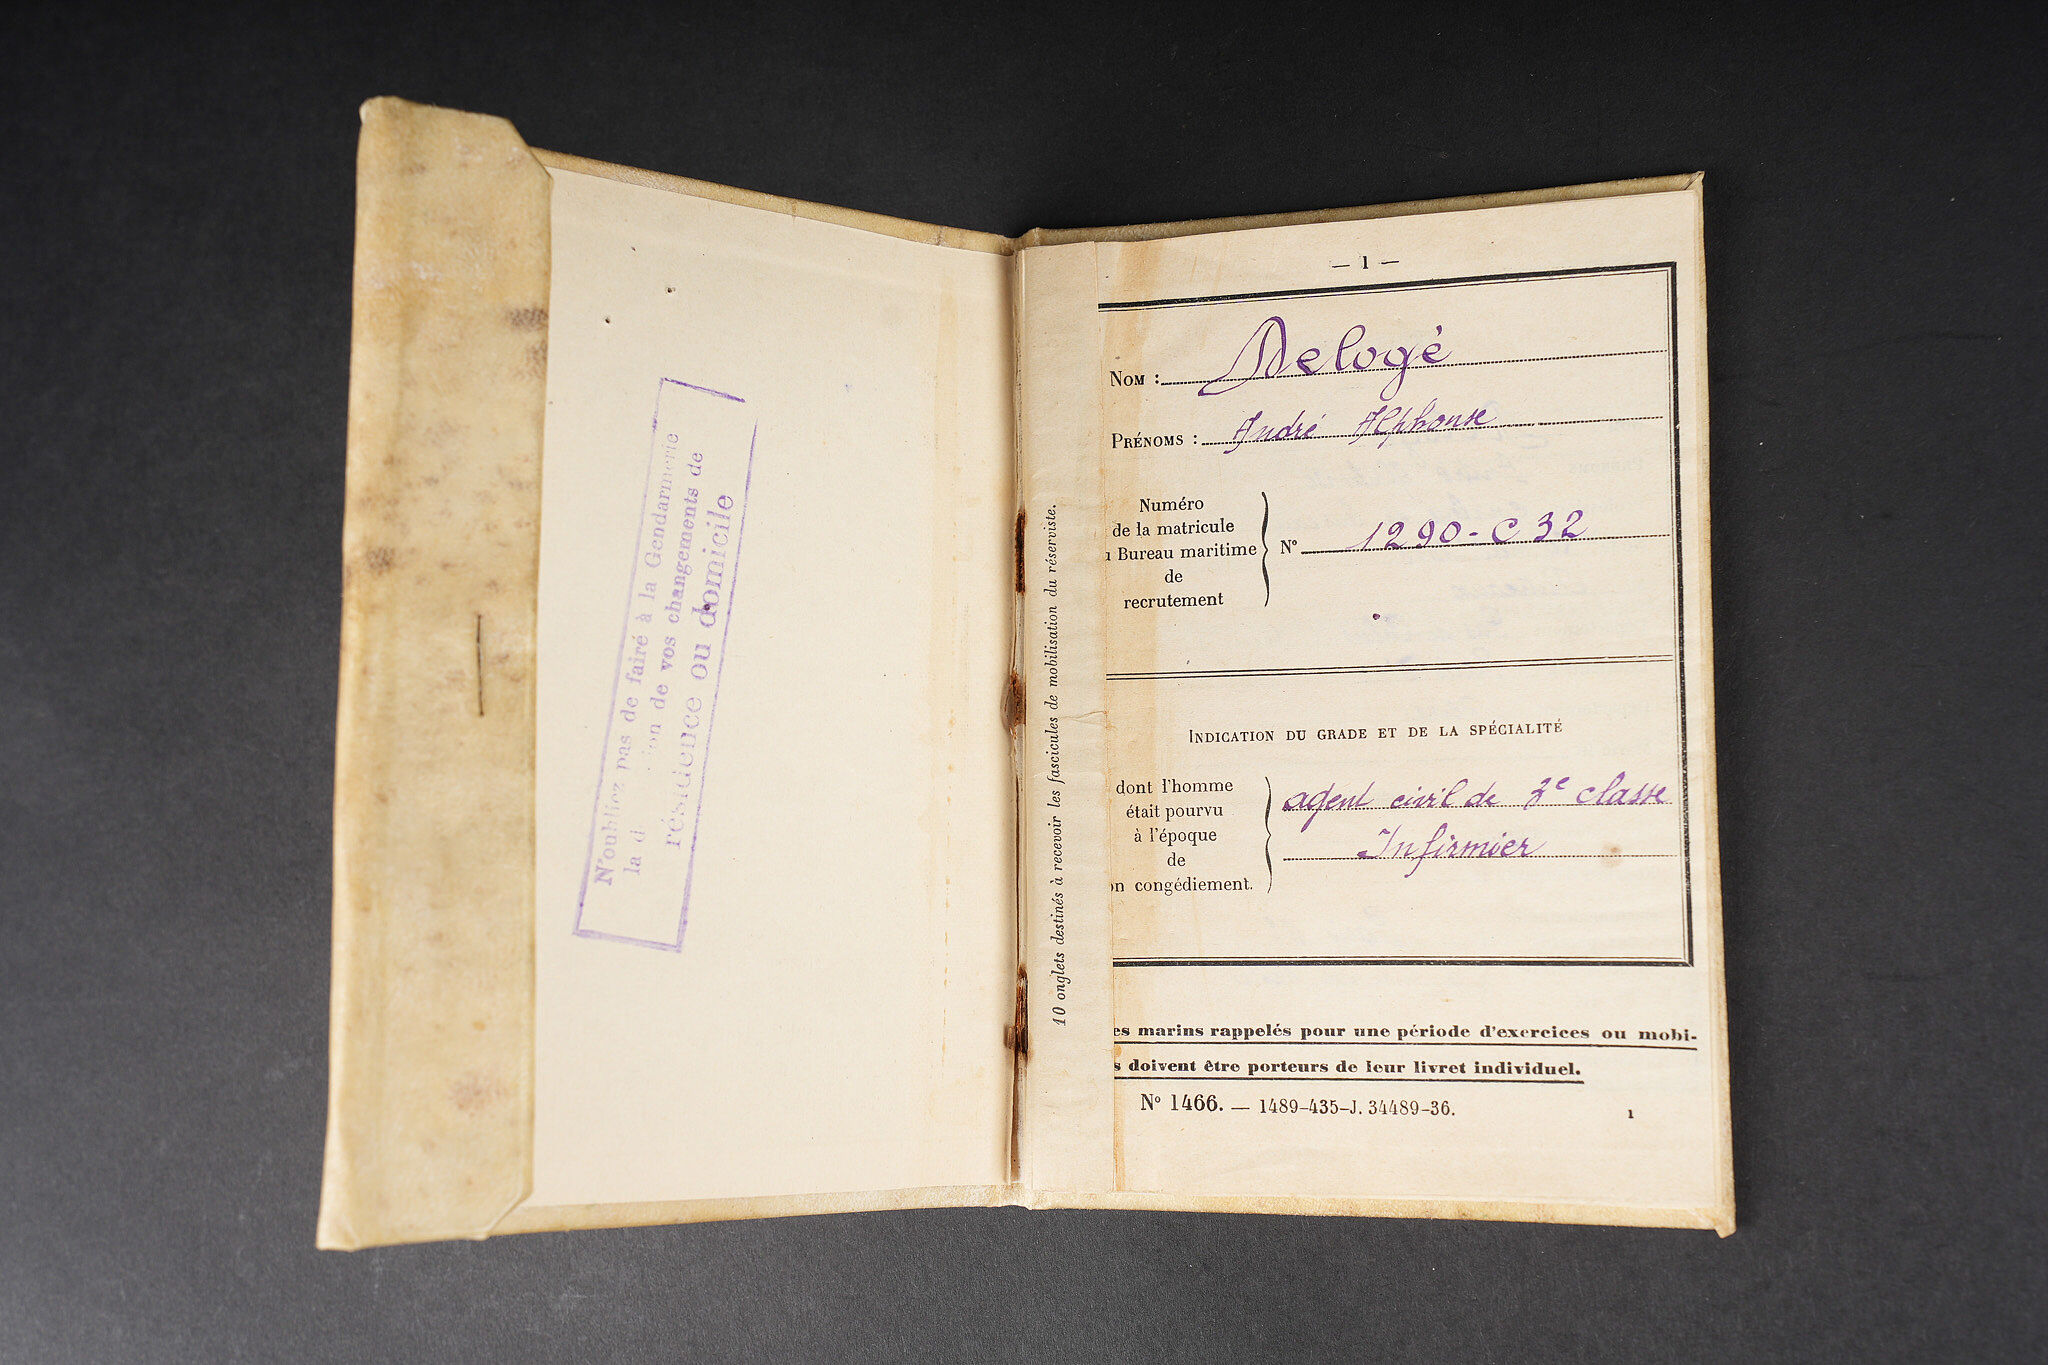 N'oubliez pas de faire à la Gendarmerie
la d ion de vos changements de
résidence ou domicile
10 onglets destinés à recevoir les fascicules de mobilisation du réserviste.
— 1 —
NOM : Delogé
PRÉNOMS : André Alphonse
Numéro
de la matricule
u Bureau maritime
de
recrutement
N° 1290-C 32
INDICATION DU GRADE ET DE LA SPÉCIALITÉ
dont l'homme
était pourvu
à l'époque
de
on congédiement.
agent civil de 3e classe
Infirmier
es marins rappelés pour une période d'exercices ou mobi-
s doivent être porteurs de leur livret individuel.
N° 1466. — 1489-435-J. 34489-36.
1